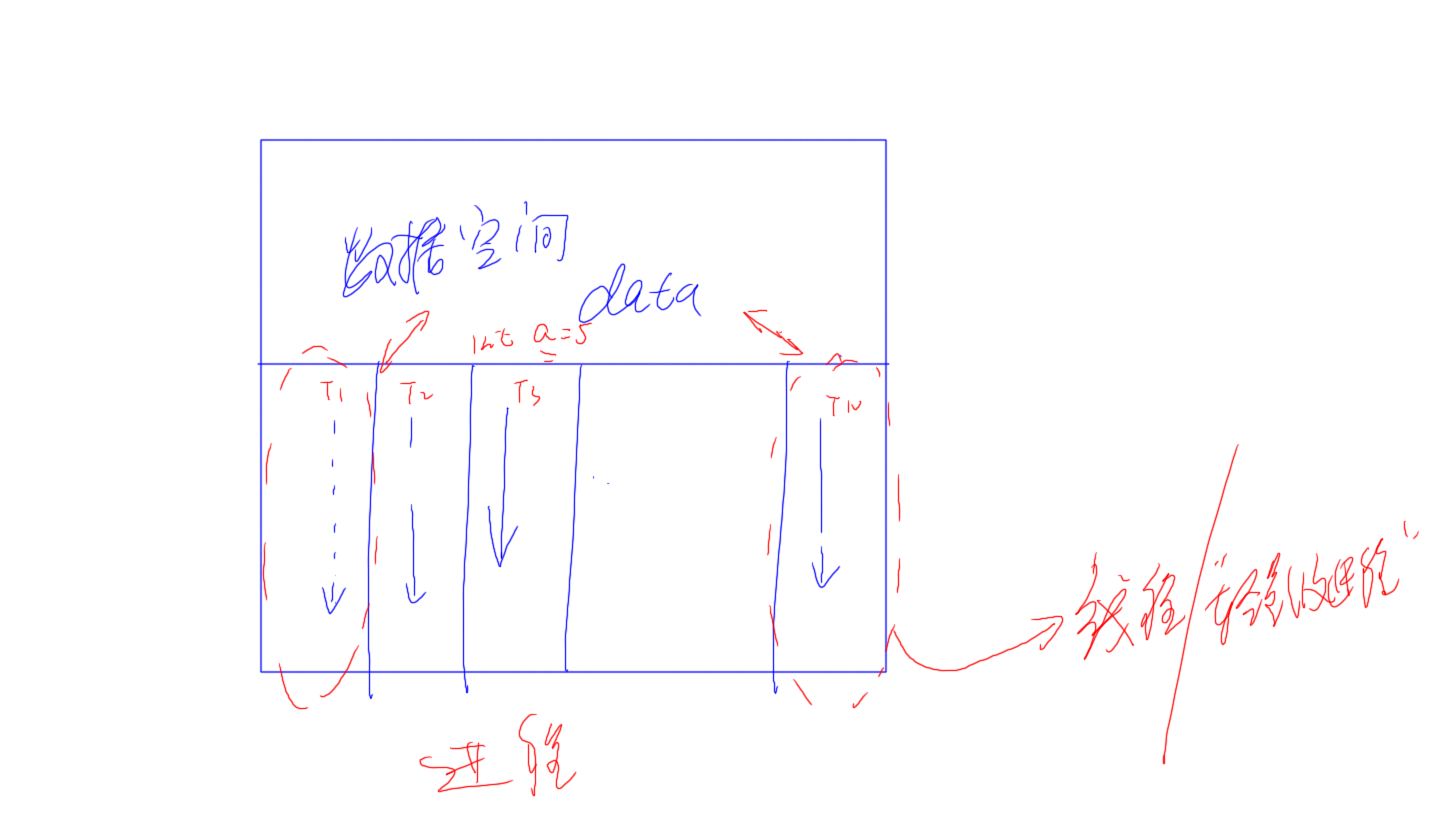 数据空间
data
int a=5
T1 T2 T3 TN
线程/"轻量级进程"
进程